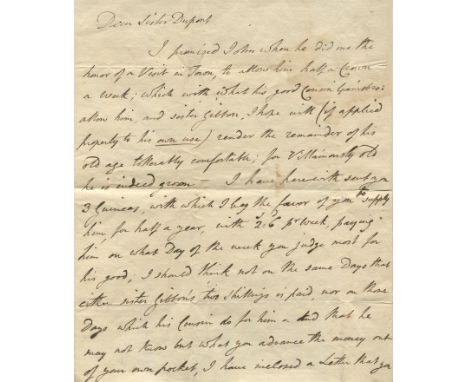 Dear Sister Dupont
I promised John when he did me the
honor of a Visit in Town, to allow him half a Crown
a week; which with what his good Cousin Gainsbro's
allow him, and sister Gibbon, I hope will (if applied
properly to his own use) render the remainder of his
old age tollerably comfortable; for Villainously old
he is indeed grown — I have herewith sent you
3 Guineas, with which I beg the favor of you to supply
him for half a year, with 2s. 6d pr Week, paying
him on what Day of the week you judge most for
his good, I should think not on the same Days that
either sister Gibbon's two shillings is paid, nor on those
Days which his Cousin do for him and that he
may not know but what you advance the money out
of your own pocket, I have inclosed a Letter that you